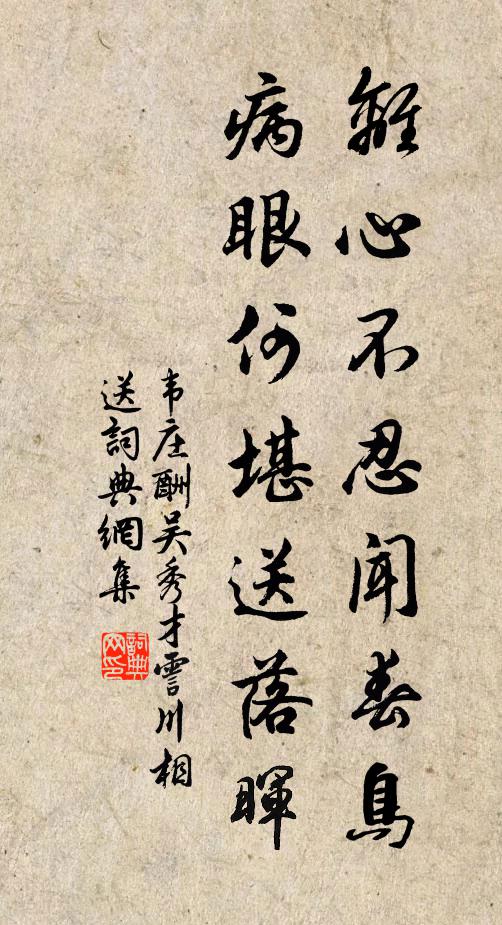 離心不忍聞春鳥
病眼何堪送落暉
韦庄酬吴秀才霅川相
送詞典網集
詞典
网印